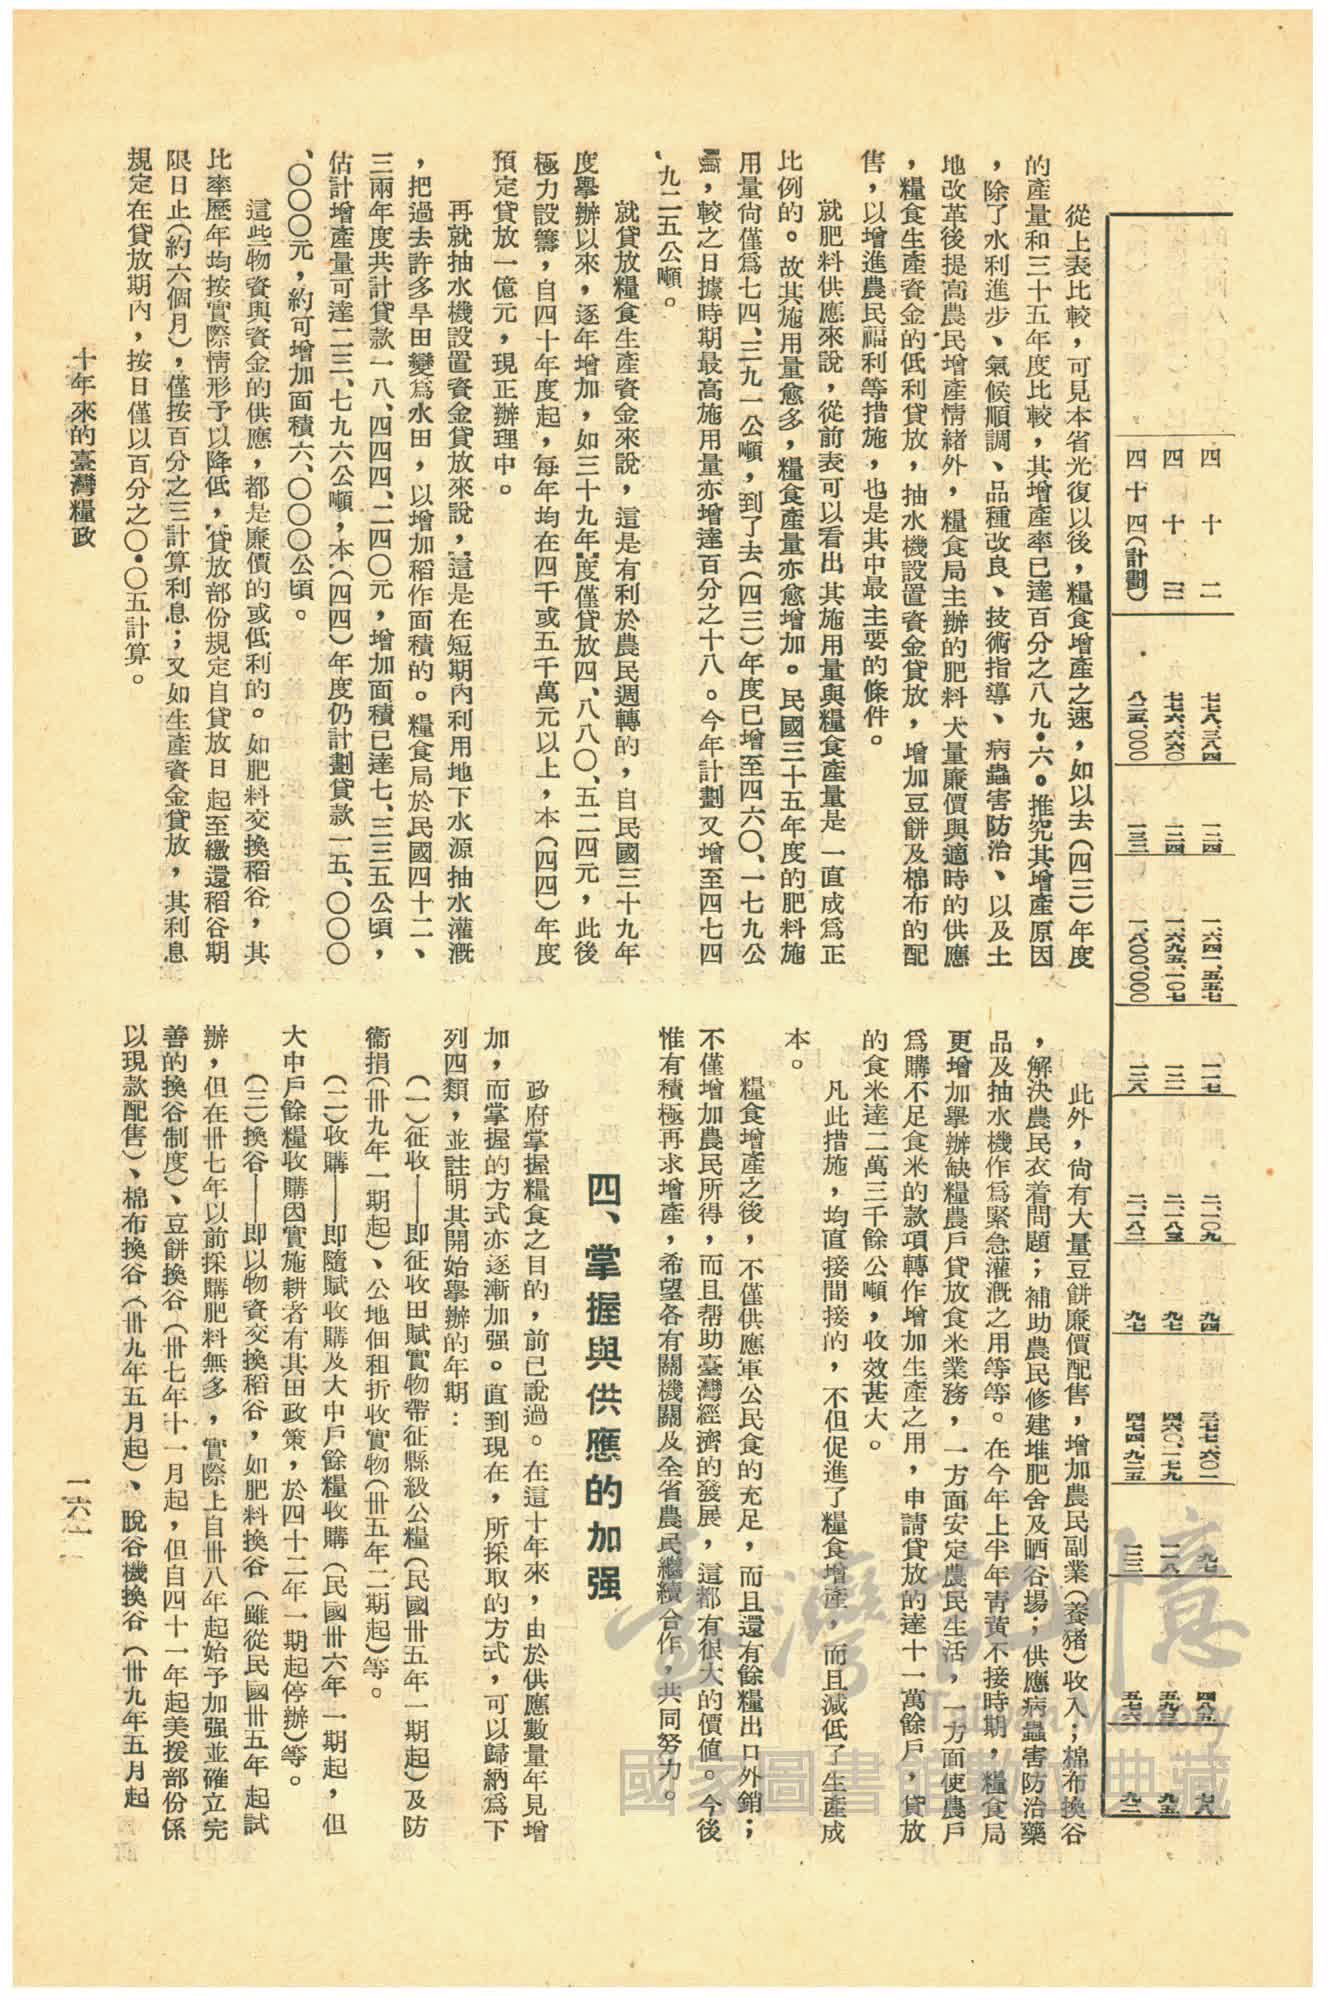 四十二 七七八、三八四 一二四 一、六四一、五五七 一二七 二、一〇九 九四 三七七、六〇二 九七 四八五 七八
四十三 七七六、六六〇 一二四 一、六九五、一〇七 一三一 二、一八三 九七 四六〇、一七九 一一八 五九三 九五
四十四(計劃) 八三五、〇〇〇 一三三 一、八〇〇、〇〇〇 一三六 二、一八二 九七 四七四、九二五 一二二 五七六 九二
從上表比較，可見本省光復以後，糧食增產之速，如以去(四三)年度
的產量和三十五年度比較，其增產率已達百分之八九・六。推究其增產原因
，除了水利進步、氣候順調、品種改良、技術指導、病蟲害防治、以及土
地改革後提高農民增產情緒外，糧食局主辦的肥料大量廉價與適時的供應
，糧食生產資金的低利貸放，抽水機設置資金貸放，增加豆餅及棉布的配
售，以增進農民福利等措施，也是其中最主要的條件。
就肥料供應來說，從前表可以看出其施用量與糧食產量是一直成爲正
比例的。故其施用量愈多，糧食產量亦愈增加。民國三十五年度的肥料施
用量尙僅爲七四、三九一公噸，到了去(四三)年度已增至四六〇、一七九公
噸，較之日據時期最高施用量亦增達百分之十八。今年計劃又增至四七四
、九二五公噸。
就貸放糧食生產資金來說，這是有利於農民週轉的，自民國三十九年
度學辦以來，逐年增加，如三十九年度僅貸放四、八八〇、五二四元，此後
極力設籌，自四十年度起，每年均在四千或五千萬元以上，本(四四)年度
預定貸放一億元，現正辦理中。
再就抽水機設置資金貸放來說，這是在短期內利用地下水源抽水灌漑
，把過去許多旱田變爲水田，以增加稻作面積的。糧食局於民國四十二、
三兩年度共計貸款一八、四四四、二四〇元，增加面積已達七、三三五公頃，
估計增產量可達二三、七九六公噸，本(四四)年度仍計劃貸款一五、〇〇〇
、〇〇〇元，約可增加面積六、〇〇〇公頃。
這些物資與資金的供應，都是廉價的或低利的。如肥料交換稻谷，其
比率歷年均按實際情形予以降低，貸放部份規定自貸放日起至繳還稻谷期
限日止(約六個月)，僅按百分之三計算利息；又如生產資金貸放，其利息
規定在貸放期內，按日僅以百分之〇・〇五計算。
此外，尙有大量豆餅廉價配售，增加農民副業(養猪)收入；棉布換谷
，解決農民衣着問題；補助農民修建堆肥舍及晒谷場；供應病蟲害防治藥
品及抽水機作爲緊急灌漑之用等等。在今年上半年靑黃不接時期，糧食局
更增加舉辦缺糧農戶貸放食米業務，一方面安定農民生活，一方面使農戶
爲購不足食米的款項轉作增加生產之用，申請貸放的達十一萬餘戶，貸放
的食米達二萬三千餘公噸，收效甚大。
凡此措施，均直接間接的，不但促進了糧食增產，而且減低了生產成
本。
糧食增產之後，不僅供應軍公民食的充足，而且還有餘糧出口外銷；
不僅增加農民所得，而且帮助臺灣經濟的發展，這都有很大的價値。今後
惟有積極再求增產，希望各有關機關及全省農民繼續合作，共同努力。
四、掌握與供應的加强
政府掌握糧食之目的，前已說過。在這十年來，由於供應數量年見增
加，而掌握的方式亦逐漸加强。直到現在，所採取的方式，可以歸納爲下
列四類，並註明其開始舉辦的年期：
(一)征收——即征收田賦實物帶征縣級公糧(民國卅五年一期起)及防
衞捐(卅九年一期起)、公地佃租折收實物(卅五年二期起)等。
(二)收購——即隨賦收購及大中戶餘糧收購(民國卅六年一期起，但
大中戶餘糧收購因實施耕者有其田政策，於四十二年一期起停辦)等。
(三)換谷——即以物資交換稻谷，如肥料換谷(雖從民國卅五年起試
辦，但在卅七年以前採購肥料無多，實際上自卅八年起始予加强並確立完
善的換谷制度)、豆餅換谷(卅七年十一月起，但自四十一年起美援部份係
以現款配售)、棉布換谷(卅九年五月起)、脫谷機換谷(卅九年五月起
十年來的臺灣糧政
一六一
臺灣記憶
Taiwan Memory
國家圖書館數位典藏